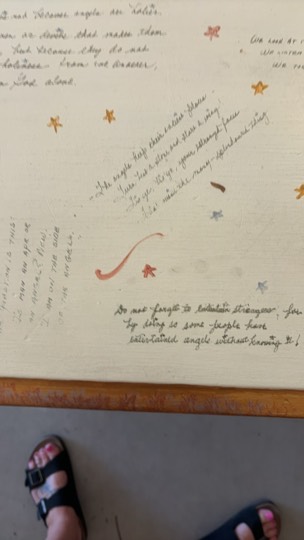 not because angels are holier
men or devils that makes them
but because they do not
holiness from one another,
God alone.
The angels keep their ancient places
Turn but a stone and start a wing!
'Tis ye, 'tis your estranged faces
That miss the many-splendoured thing
IS THIS:
IS MAN AN APE OR
AN ANGEL?
I AM ON THE SIDE
OF THE ANGELS.
Do not forget to entertain strangers, for
by doing so some people have
entertained angels without knowing it!